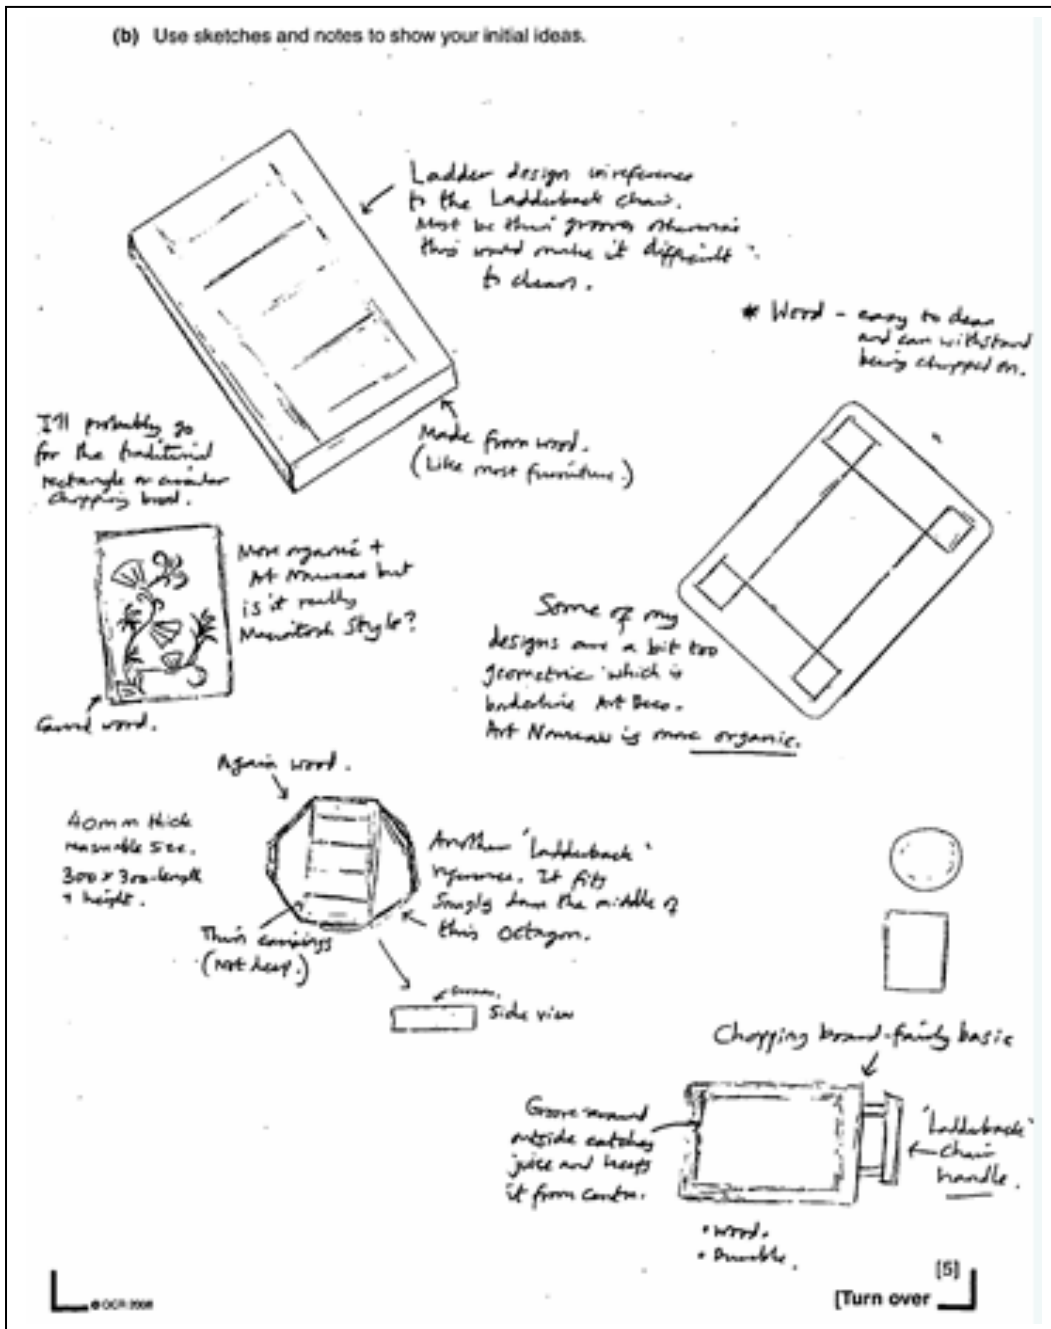 (b) Use sketches and notes to show your initial ideas.
Ladder design in reference
to the Ladderback chair.
Must be thin grooves otherwise
this would make it difficult
to clean.
* Wood - easy to clean
and can withstand
being chopped on.
Made from wood.
(Like most furniture.)
I'll probably go
for the traditional
rectangle or circular
chopping board.
More organic +
Art Nouveau but
is it really
Macintosh Style?
Carved wood.
Some of my
designs are a bit too
geometric which is
borderline Art Deco.
Art Nouveau is more organic.
Again wood.
40mm thick
300 x 300 - length
+ height.
Another 'Ladderback'
reference. It fits
snugly down the middle of
this octagon.
Thin carvings
(Not deep.)
Side view
Chopping board - fairly basic
Groove around
outside catches
juice and keeps
it from centre.
'Ladderback'
chair
handle.
• Wood.
• Durable.
[5]
© OCR 2008
[Turn over